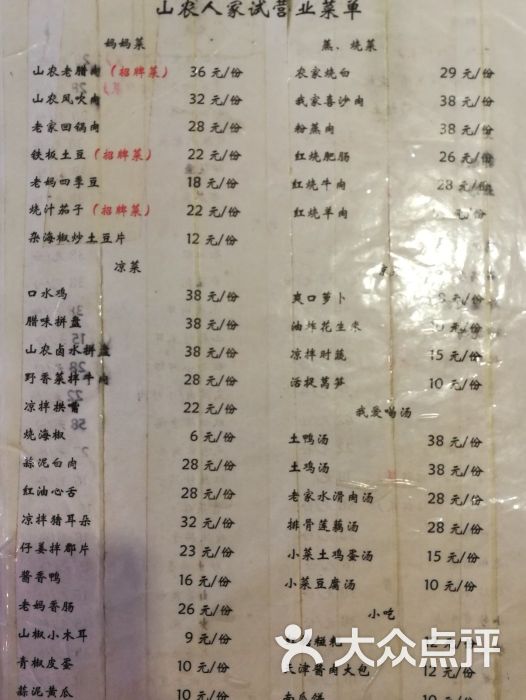 山农人家试营业菜单
妈妈菜
山农老腊肉（招牌菜） 36 元/份
山农风吹肉 32 元/份
老家回锅肉 28 元/份
铁板土豆（招牌菜） 22 元/份
老妈四季豆 18 元/份
烧汁茄子（招牌菜） 22 元/份
杂海椒炒土豆片 12 元/份
凉菜
口水鸡 38 元/份
腊味拼盘 38 元/份
山农卤水拼盘 38 元/份
野香菜拌牛肉 28 元/份
凉拌拱嘴 22 元/份
烧海椒 6 元/份
蒜泥白肉 28 元/份
红油心舌 28 元/份
凉拌猪耳朵 32 元/份
仔姜拌郡片 23 元/份
酱香鸭 16 元/份
老妈香肠 26 元/份
山椒小木耳 9 元/份
青椒皮蛋 10 元/份
蒜泥黄瓜 10 元/份
蒸、烧菜
农家烧白 29 元/份
我家喜沙肉 38 元/份
粉蒸肉 38 元/份
红烧肥肠 26 元/份
红烧牛肉 28 元/份
红烧羊肉 元/份
爽口萝卜 元/份
油炸花生米 元/份
凉拌时蔬 15 元/份
活捉莴笋 10 元/份
我爱喝汤
土鸭汤 38 元/份
土鸡汤 38 元/份
老家水滑肉汤 28 元/份
排骨莲藕汤 28 元/份
小菜土鸡蛋汤 15 元/份
小菜豆腐汤 10 元/份
小吃
糍粑 12 元/份
天津酱肉大包 12 元/份
南瓜饼
大众点评